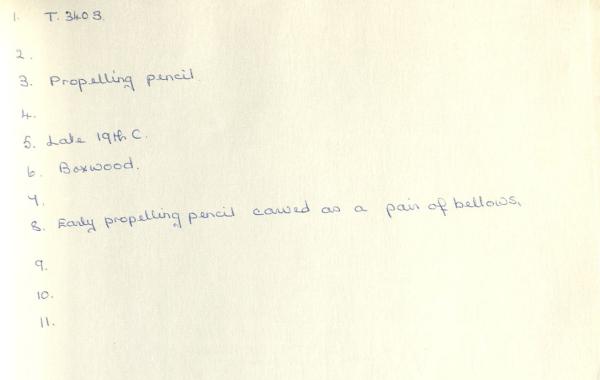 1. T. 3403.
2.
3. Propelling pencil.
4.
5. Late 19th C.
6. Boxwood.
7.
8. Early propelling pencil carved as a pair of bellows.
9.
10.
11.